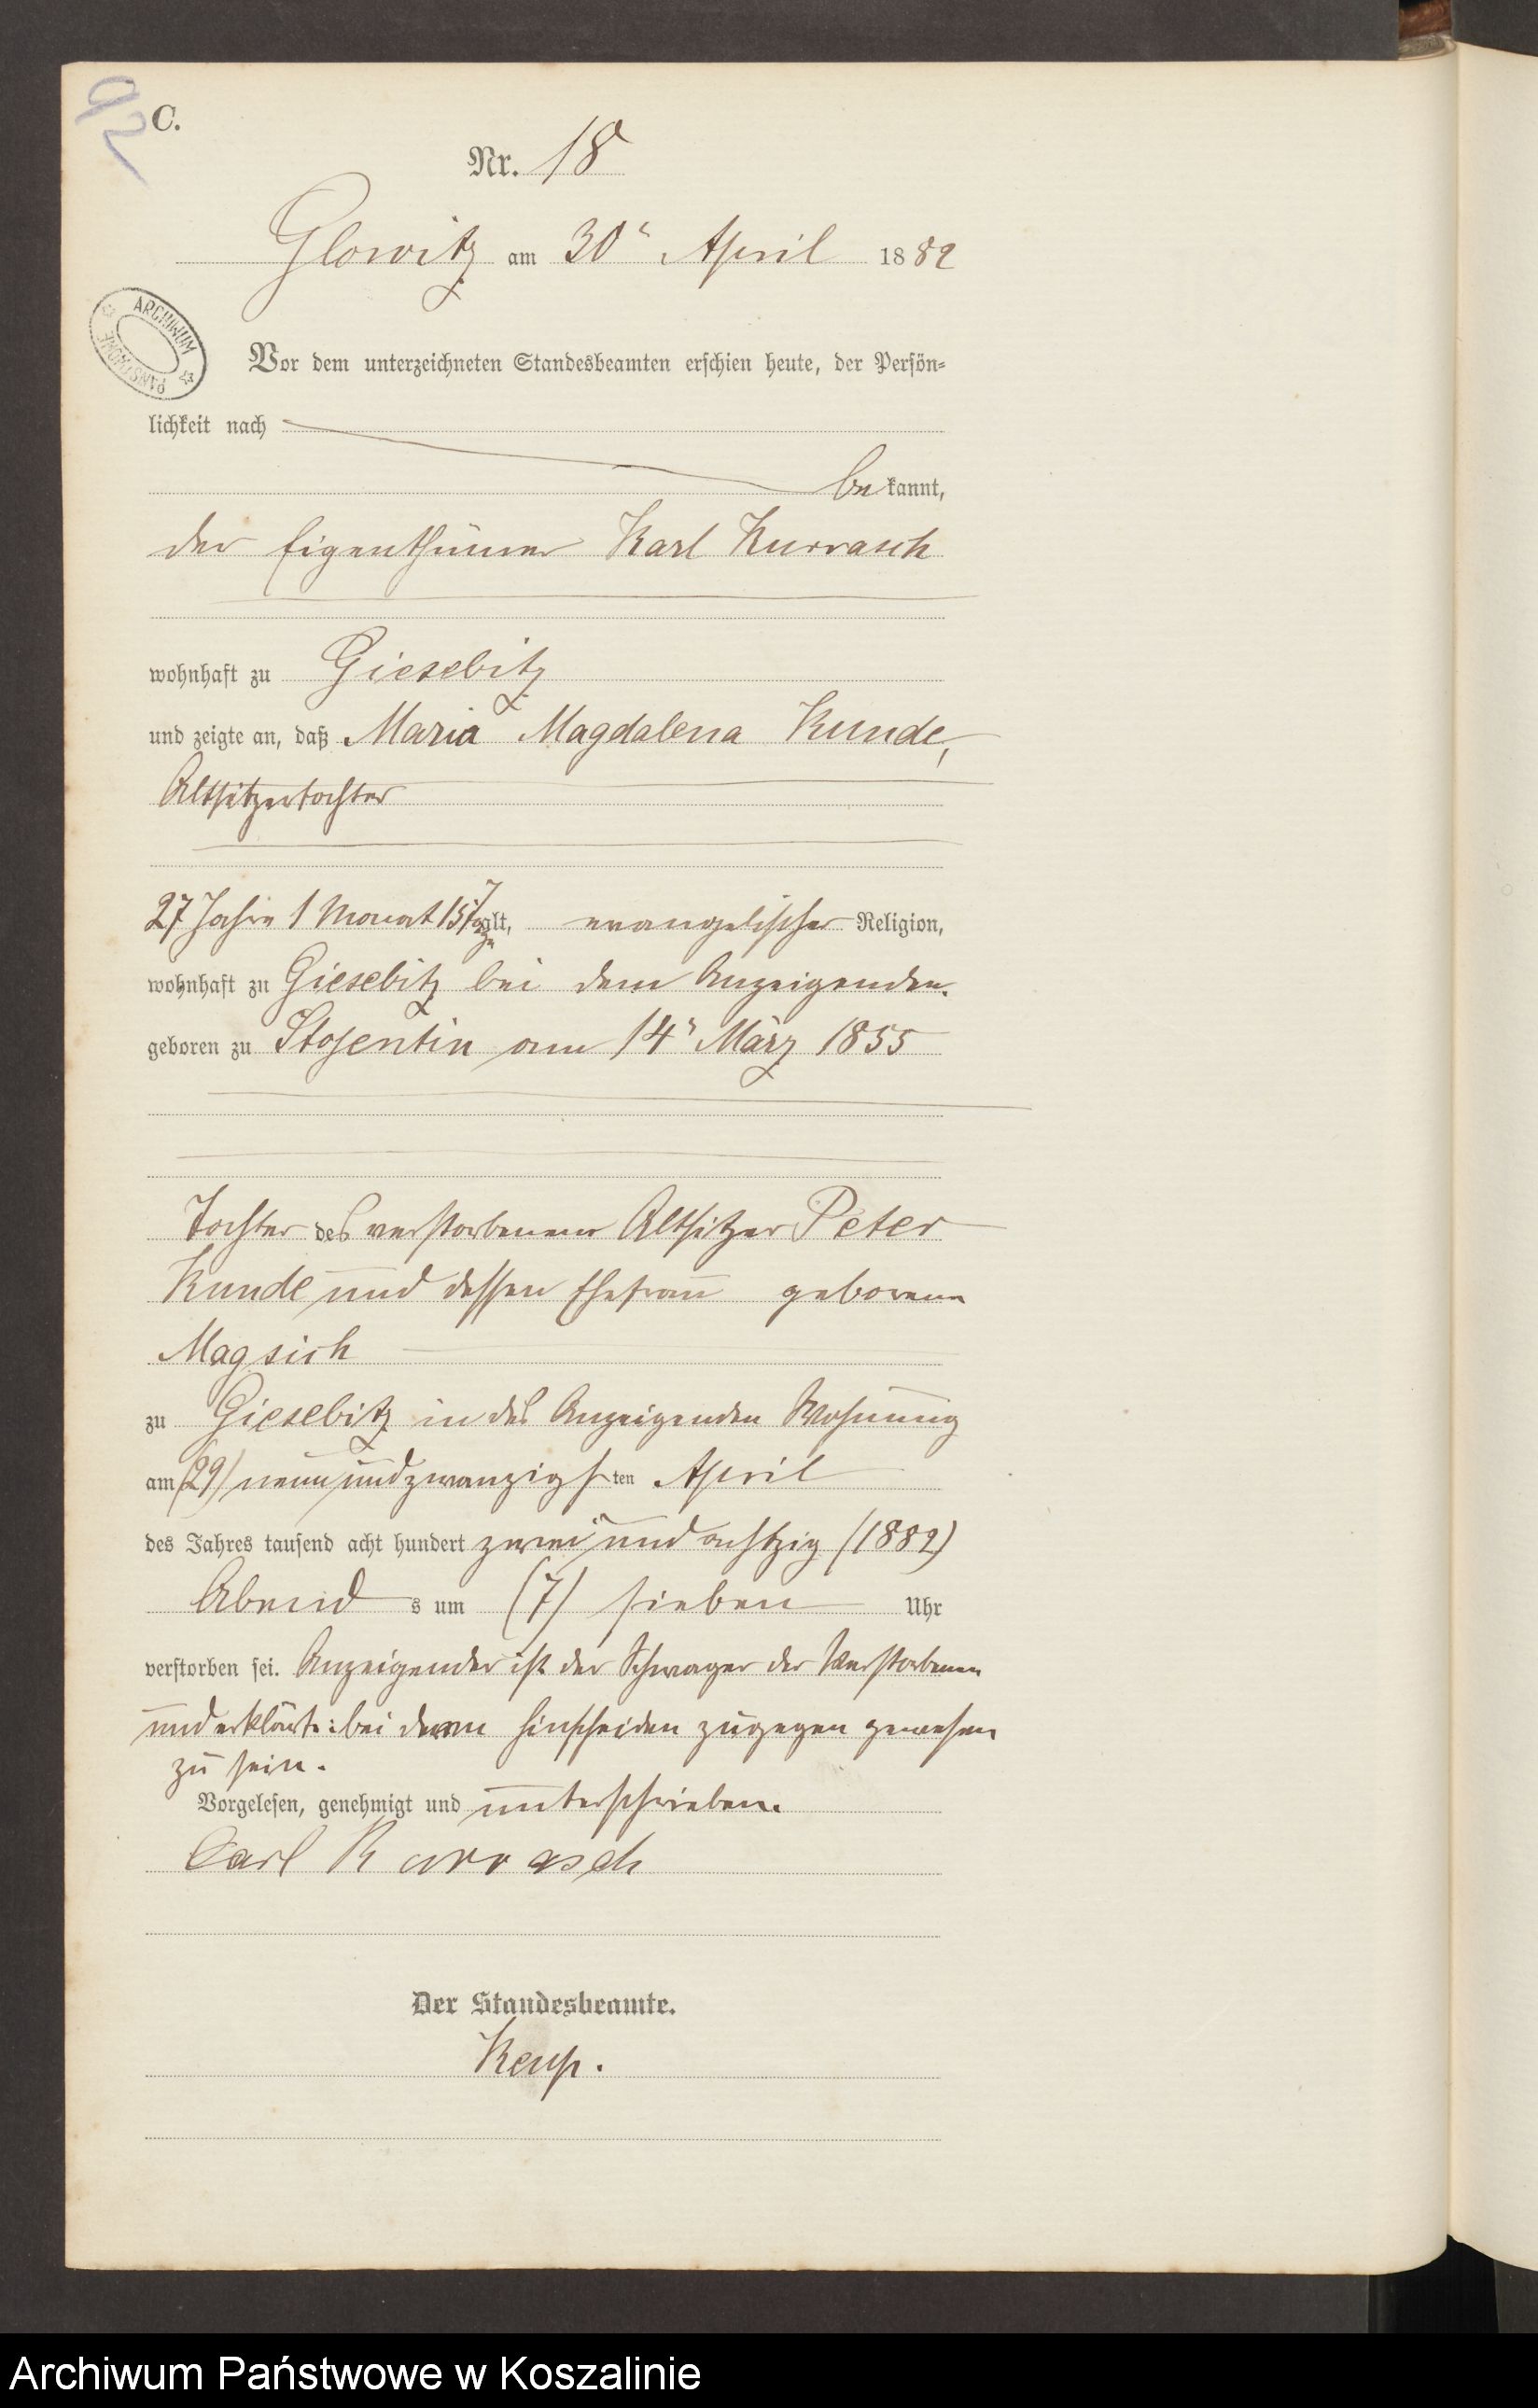 92
C.
Nr. 18
Glowitz am 30ᵗ April 1882
ARCHIWUM PAŃSTWOWE
Vor dem unterzeichneten Standesbeamten erschien heute, der Persön-
lichkeit nach
bekannt,
der Eigenthümer Karl Kurrasch
wohnhaft zu Giesebitz
und zeigte an, daß Maria Magdalena Kunde,
Altsitzertochter
27 Jahre 1 Monat 15 Tage alt, evangelischer Religion,
wohnhaft zu Giesebitz bei dem Anzeigenden.
geboren zu Stojentin am 14ᵗ März 1855
Tochter des verstorbenen Altsitzer Peter
Kunde und dessen Ehefrau geborene
Magsich
zu Giesebitz in des Anzeigenden Wohnung
am (29) neunundzwanzigsten April
des Jahres tausend acht hundert zweiundachtzig (1882)
Abends um (7) sieben Uhr
verstorben sei. Anzeigender ist der Schwager der Verstorbenen
und erklärte: bei deren Hinscheiden zugegen gewesen
zu sein.
Vorgelesen, genehmigt und unterschrieben.
Carl Kurrasch
Der Standesbeamte.
Keup.
Archiwum Państwowe w Koszalinie